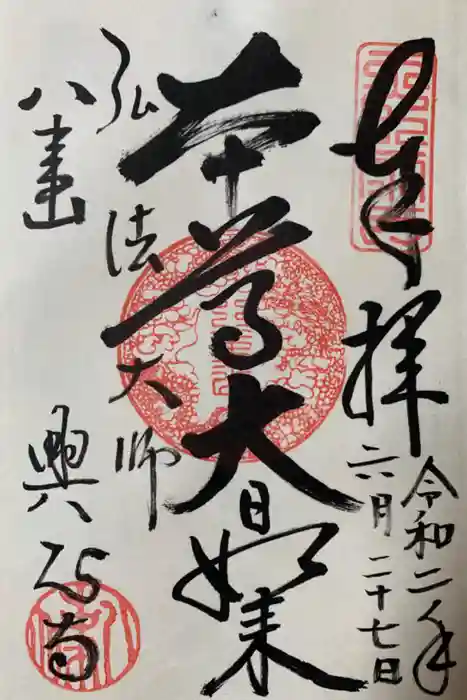 奉拝
令和二年
六月二十七日
本尊大日如来
弘法大師
八事山
興正寺